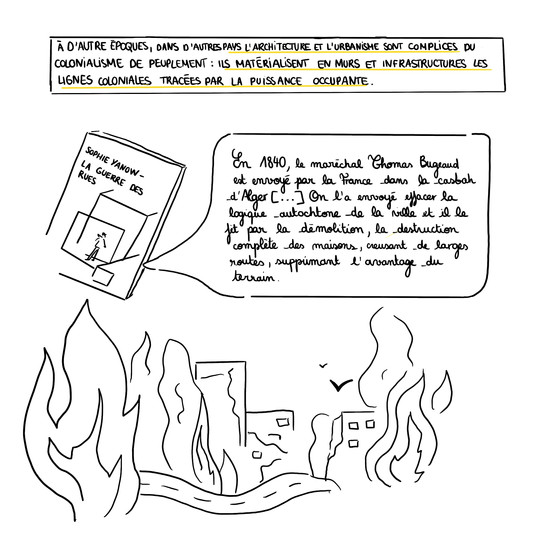 À D'AUTRE ÉPOQUES, DANS D'AUTRES PAYS L'ARCHITECTURE ET L'URBANISME SONT COMPLICES DU
COLONIALISME DE PEUPLEMENT : ILS MATÉRIALISENT EN MURS ET INFRASTRUCTURES LES
LIGNES COLONIALES TRACÉES PAR LA PUISSANCE OCCUPANTE.
SOPHIE YANOW -
LA GUERRE DES
RUES
En 1840, le maréchal Thomas Bugeaud
est envoyé par la France dans la casbah
d'Alger [...] On l'a envoyé effacer la
logique autochtone de la ville et il le
fit par la démolition, la destruction
complète des maisons, creusant de larges
routes, supprimant l'avantage du
terrain.